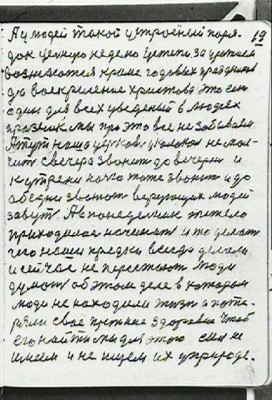 А у людей такой устроеный поря- 19
док целую неделю
возносятся кроме годовых праздников
да воскреление христова это сон
один для всех уведений в людях
празник мы про это все не забываем
А тут наша церковь уколокол не мол-
чит свечера звонит до вечерни и
к утрени ночю тоже звонит и до
обедни звонят верующих людей
завут А в понедельник тяжело
приходилося начинать и то делать
чего наши предки всегда делали
и сейчас не перестают люди
думать об этом деле в котором
люди не находили жизн а поте-
ряли свое прежние здоровие Чтоб
его найти мы для этого сил не
имеем и не ищем их уприроде.